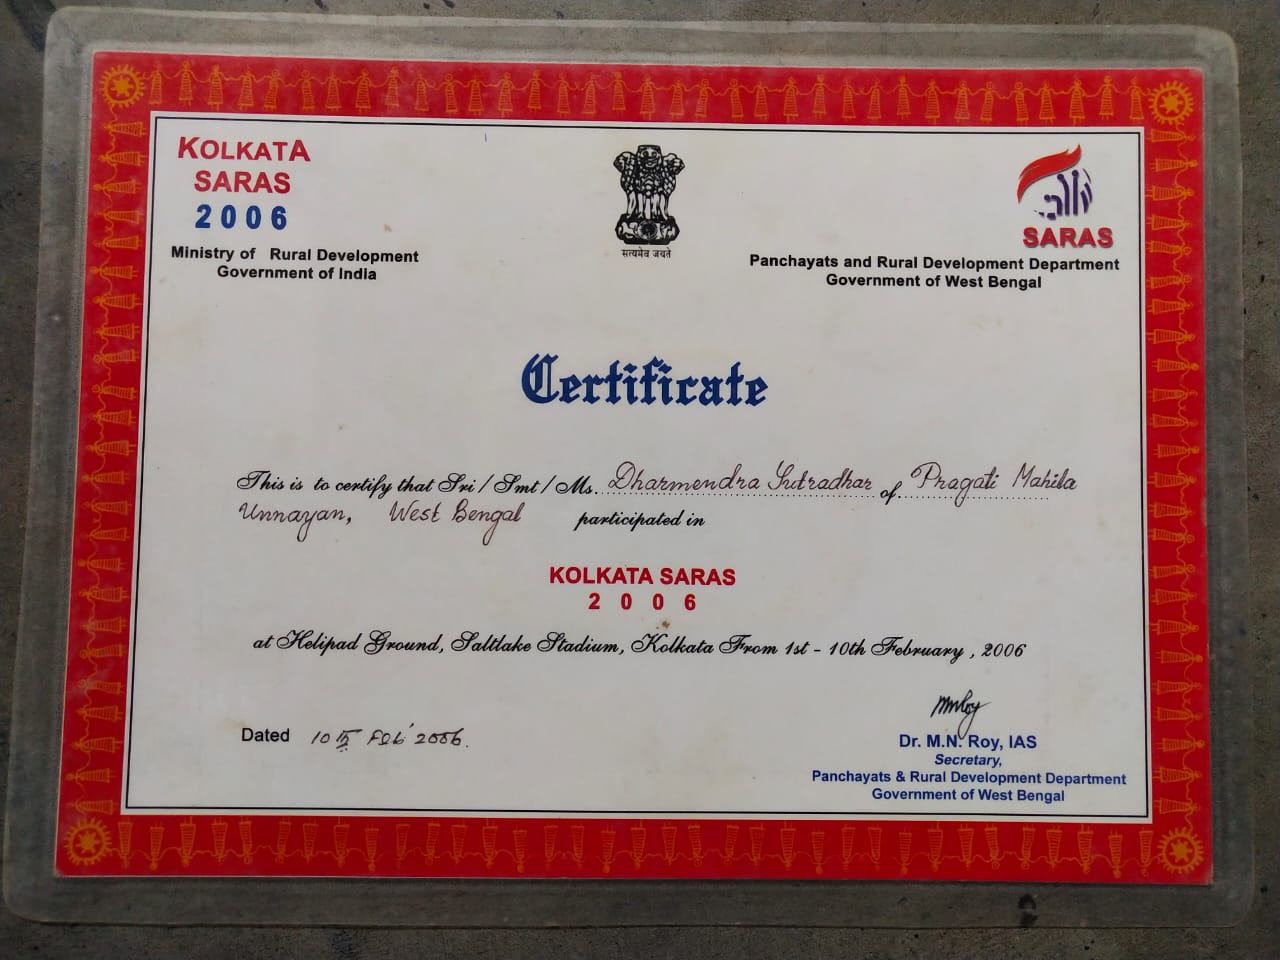 KOLKATA
SARAS
2006
Ministry of Rural Development
Government of India
सत्यमेव जयते
SARAS
Panchayats and Rural Development Department
Government of West Bengal
Certificate
This is to certify that Sri / Smt / Ms. Dharmendra Sutradhar of Pragati Mahila
Unnayan, West Bengal participated in
KOLKATA SARAS
2 0 0 6
at Helipad Ground, Saltlake Stadium, Kolkata From 1st - 10th February , 2006
Dated 10th Feb' 2006.
Dr. M.N. Roy, IAS
Secretary,
Panchayats & Rural Development Department
Government of West Bengal